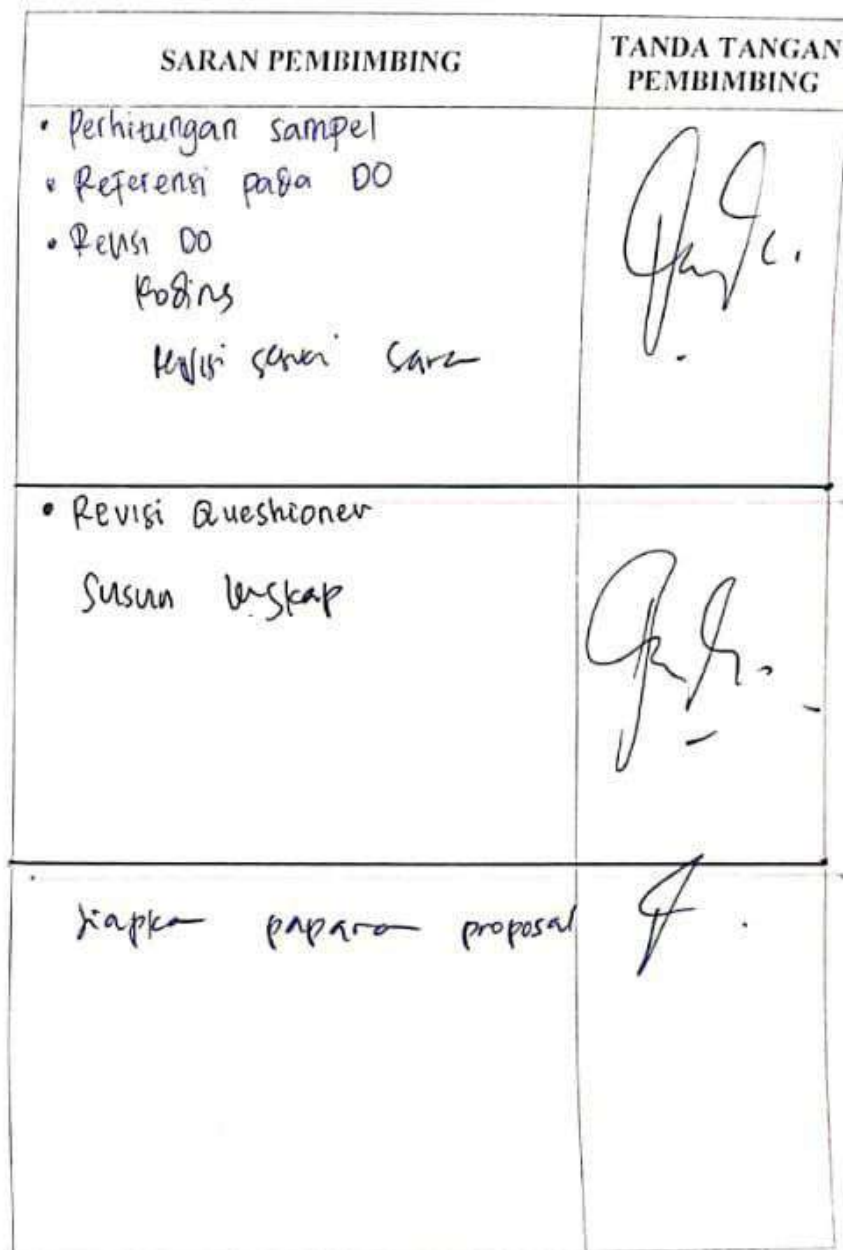 SARAN PEMBIMBING
TANDA TANGAN
PEMBIMBING
• Perhitungan sampel
• Referensi pada DO
• Revisi DO
Koding
sesuai saran
• Revisi Queshioner
Susun lengkap
Siapkan paparan proposal